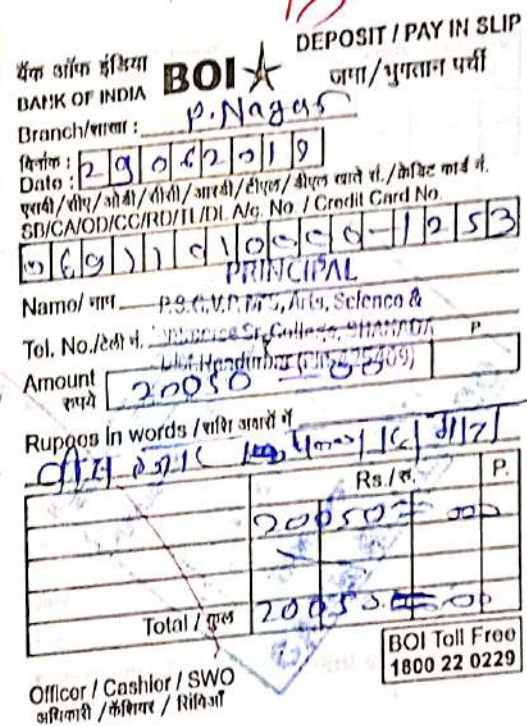 DEPOSIT / PAY IN SLIP
बैंक ऑफ इंडिया BOI जमा/भुगतान पर्ची
BANK OF INDIA
Branch/शाखा : P. Nagar
दिनांक :
Date : 29062019
एसबी/सीए/ओडी/सीसी/आरडी/टीएल/डीएल खाते सं./क्रेडिट कार्ड नं.
SB/CA/OD/CC/RD/TL/DL A/c. No / Credit Card No.
PRINCIPAL
Name/ नाम P.S.G.V.P.M'S, Arts, Science &
Tel. No./टेली नं. Commerce Sr. College, SHAHADA P
Dist. Nandurbar (425409)
Amount
रुपये 20050 = 00
Rupees in words / राशि अक्षरों में
वीस हजार पन्नास मात्र
Rs./रु. P.
20050 = 00
Total / कुल 20050 = 00
BOI Toll Free
1800 22 0229
Officer / Cashier / SWO
अधिकारी / कैशियर /